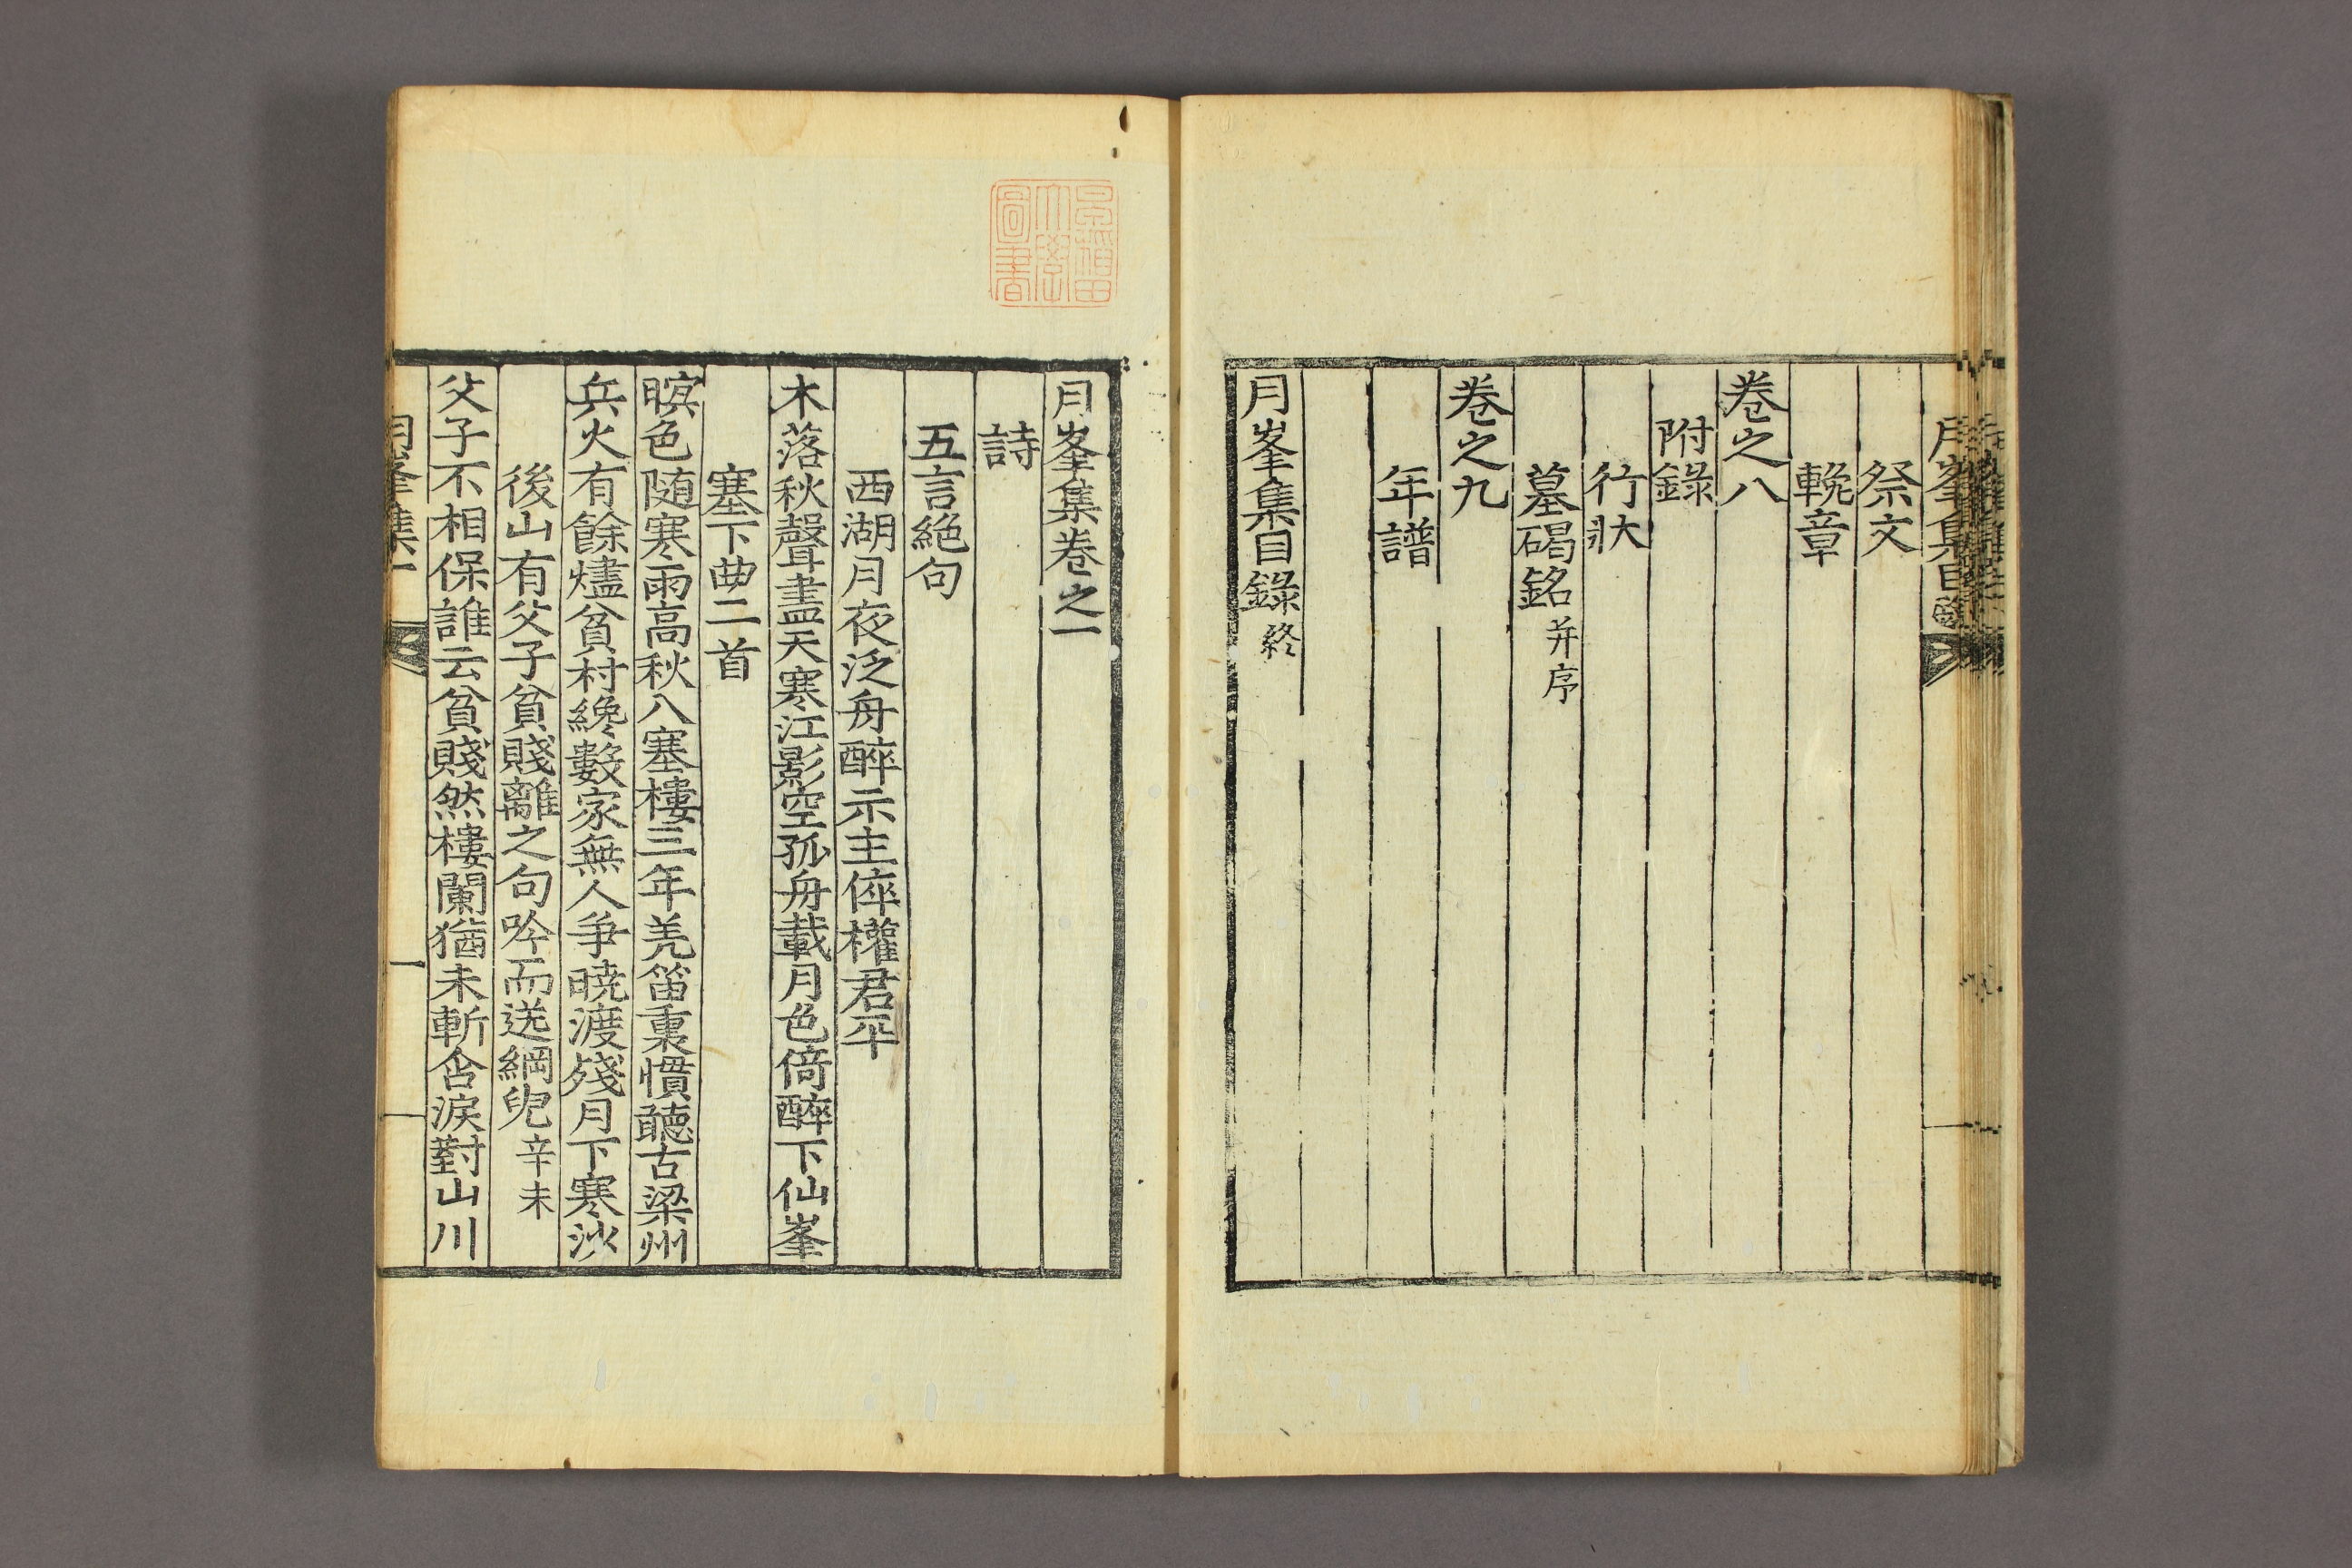 月峯集目
祭文
輓章
卷之八
附錄
行狀
墓碣銘 并序
卷之九
年譜
月峯集目錄 終
早稲田大學圖書
月峯集卷之一
詩
五言絕句
西湖月夜泛舟醉示主倅權君平
木落秋聲盡天寒江影空孤舟載月色倚醉下仙峯
塞下曲二首
暝色随寒雨高秋八塞樓三年羌笛裏慣聽古梁州
兵火有餘燼貧村纔數家無人爭曉渡殘月下寒沙
後山有父子貧賤離之句吟而送綱兒 辛未
父子不相保誰云貧賤然樓闌猶未斬含淚對山川
月峯集一
一